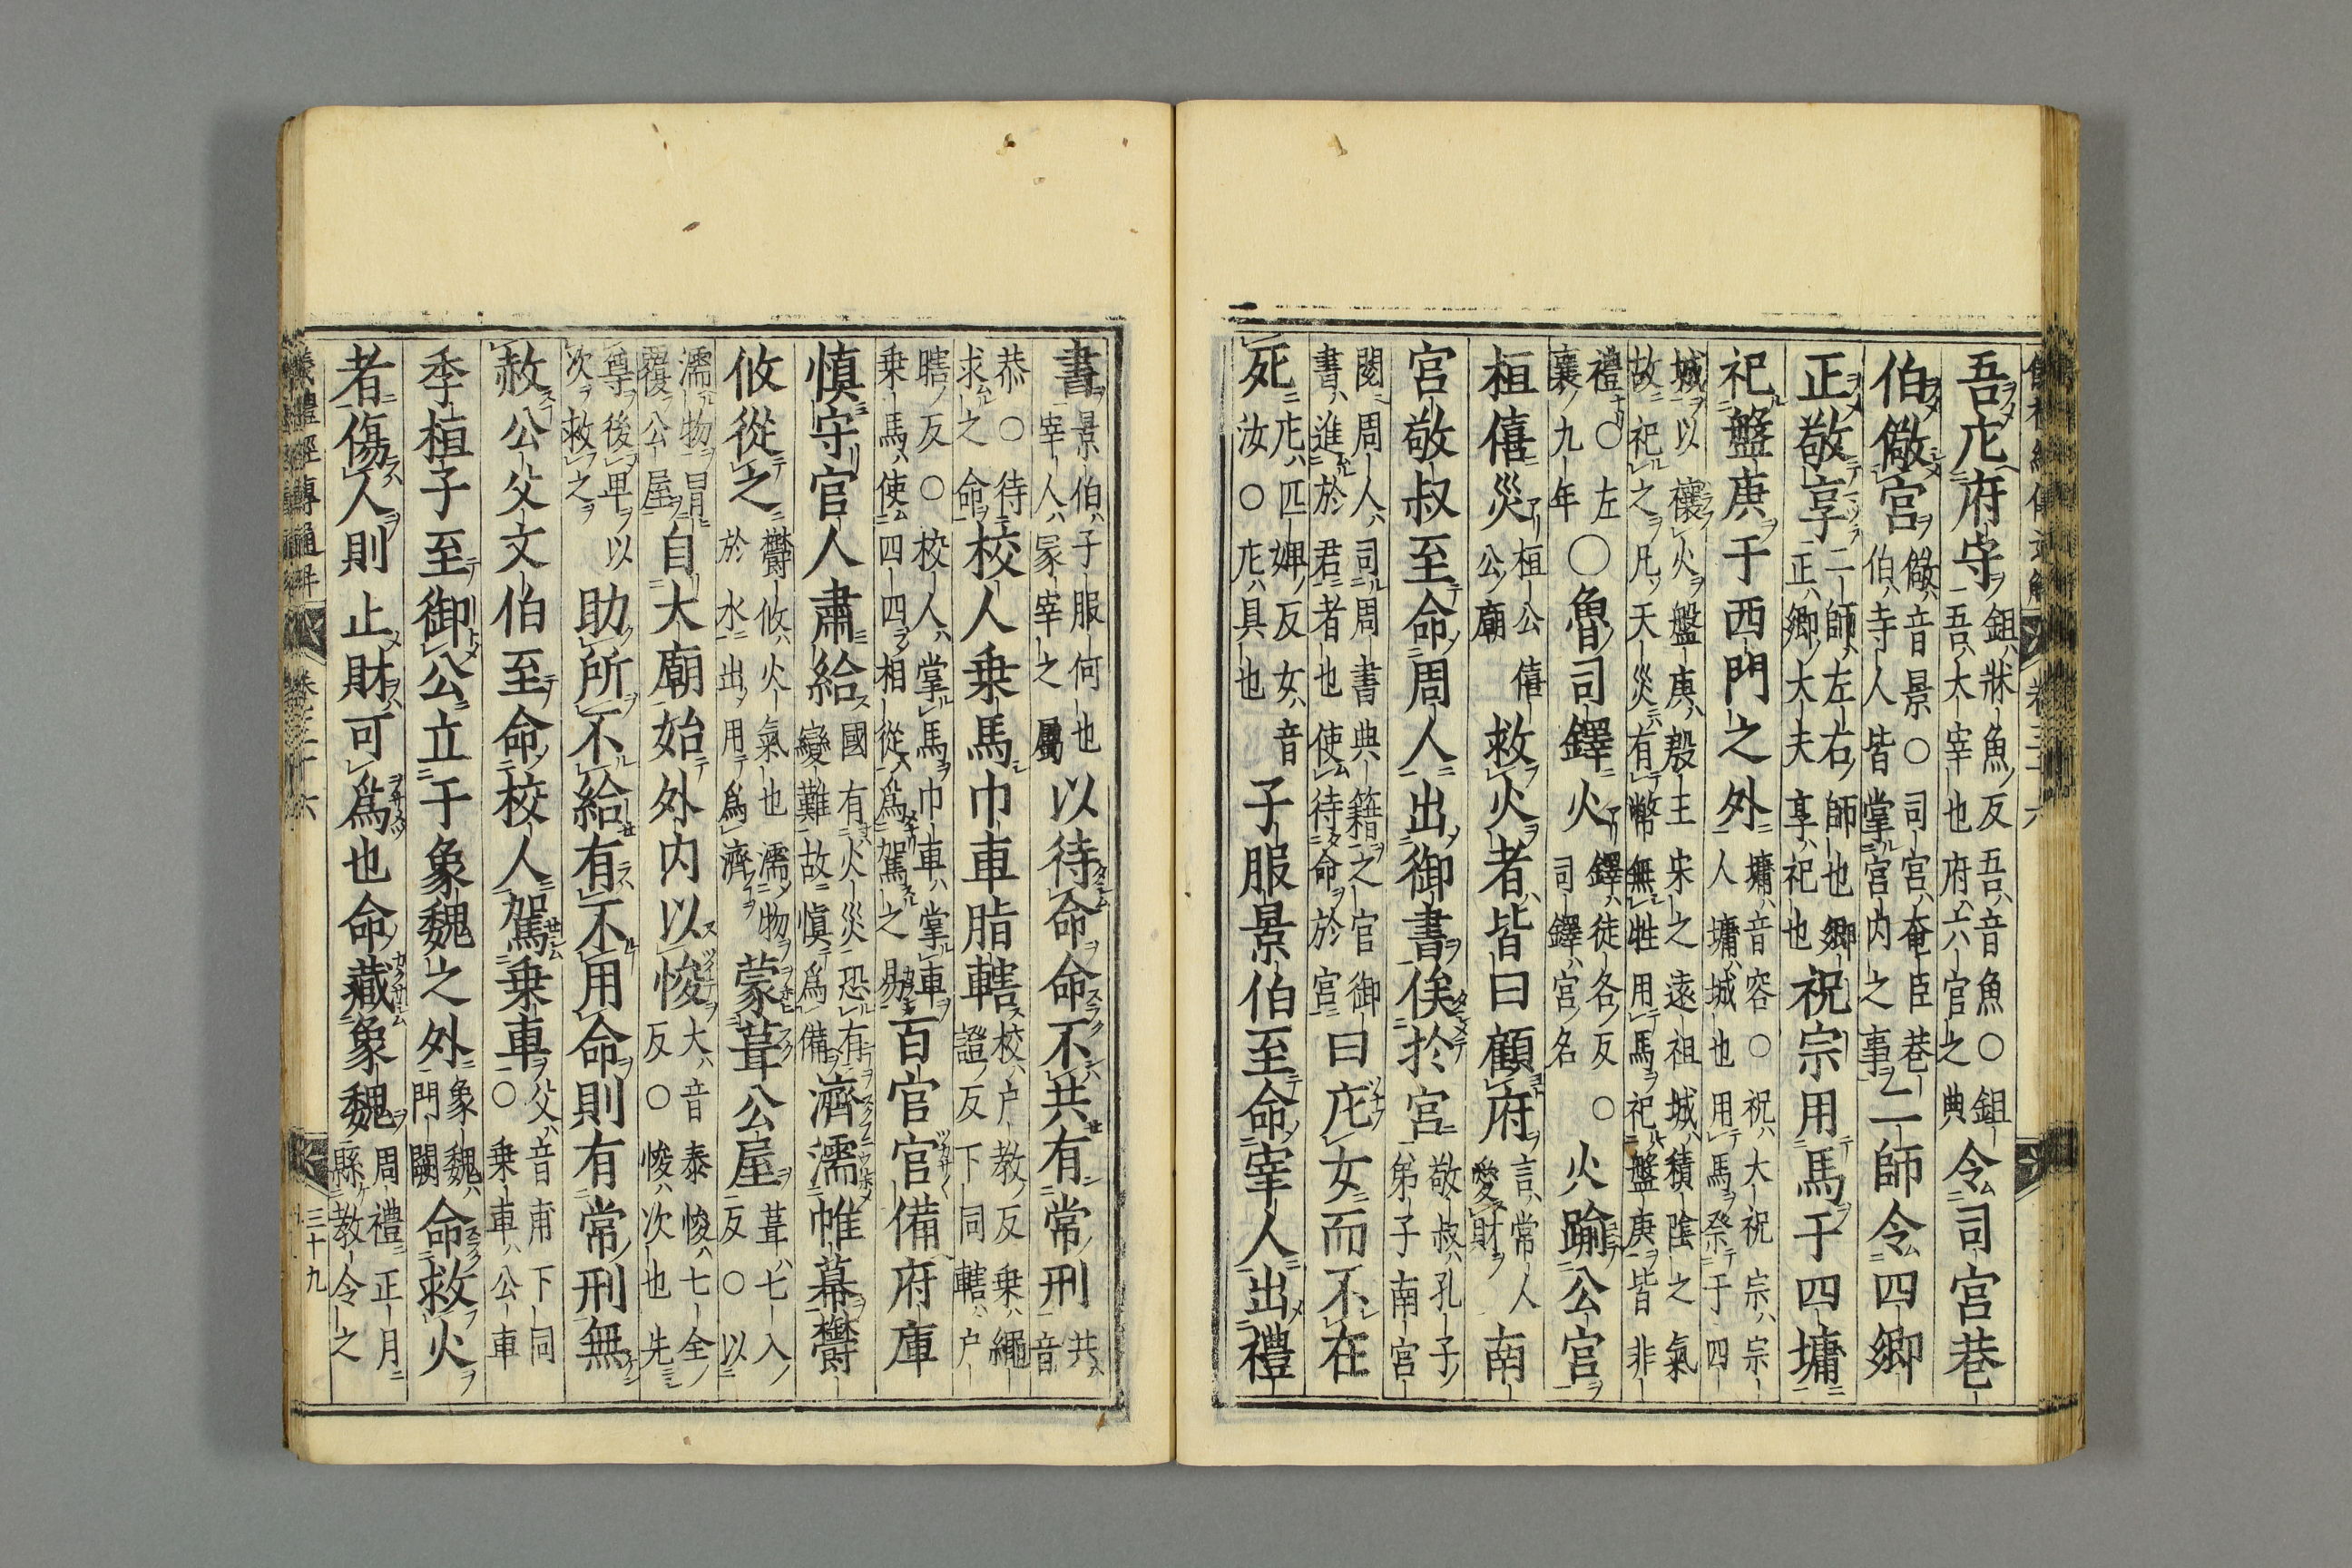 吾庀府守 鉏牀魚反吾音魚○鉏 吾太宰也府六官之典 令司宮巷
伯儆宮 儆音景○司宮奄臣巷 伯寺人皆掌宮内之事 二師令四鄉
正敬享 二師左右師也鄉 正鄉大夫享祀也 祝宗用馬于四墉
祀盤庚于西門之外 墉音容○祝大祝宗宗 人墉城也用馬祭于四
城以禳火盤庚殷王宋之遠祖城積陰之氣 故祀之凡天災有幣無牲用馬祀盤庚皆非
禮○左 襄九年 ○魯司鐸火 鐸徒各反○ 司鐸宮名 火踰公宮
桓僖災 桓公僖 公廟 救火者皆曰顧府 言常人 愛財 南
宮敬叔至命周人出御書俟於宮 敬叔孔子 弟子南宮
閱周人司周書典籍之官御 書進於君者也使待命於宮 曰庀女而不在
死 庀匹婢反女音 汝○庀具也 子服景伯至命宰人出禮
書 景伯子服何也 宰人冢宰之屬 以待命命不共有常刑 共 音
恭○待 求之命 校人乗馬巾車脂轄 校户教反乗繩 證反下同轄户
瞎反○校人掌馬巾車掌車 乗馬使四四相從爲駕之易 百官官備府庫
慎守官人肅給 國有火災恐有 變難故慎爲備 濟濡帷幕鬱
攸從之 鬱攸火氣也濡物 於水出用爲濟 蒙葺公屋 葺七入 反○以
濡物冒 覆公屋 自大廟始外内以悛 大音泰悛七全 反○悛次也先
尊後卑以 次救之 助所不給有不用命則有常刑無
赦公父文伯至命校人駕乗車 父音甫下同 ○乗車公車
季桓子至御公立于象魏之外 象魏 門闕 命救火
者傷人則止財可爲也命藏象魏 周禮正月 縣教令之
儀禮經傳通解 卷三十六 三十九